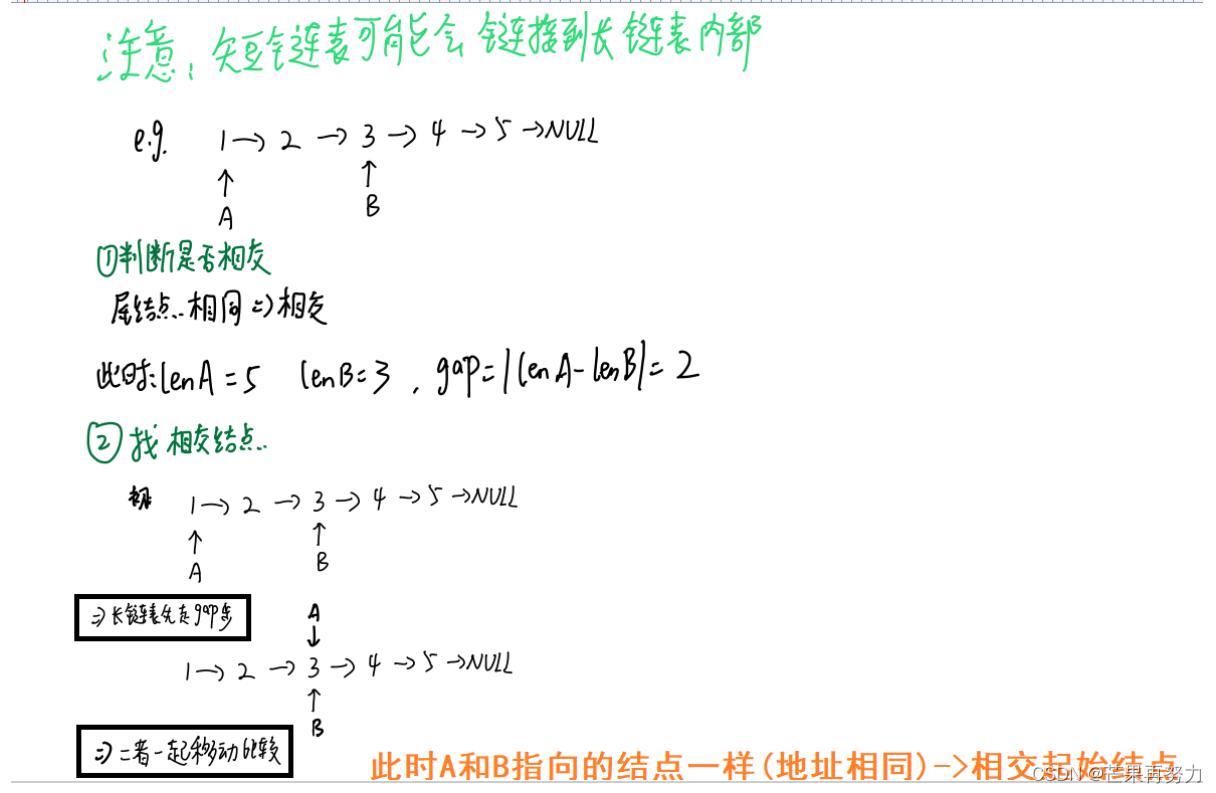 注意：短链表可能会链接到长链表内部
e.g. 1→2→3→4→5→NULL
↑ ↑
A B
①判断是否相交
尾结点..相同=>相交
此时:lenA=5 lenB=3，gap=|lenA-lenB|=2
②找相交结点..
1→2→3→4→5→NULL
↑ ↑
A B
=>长链表先走gap步
A
↓
1→2→3→4→5→NULL
↑
B
=>二者一起移动比较
此时A和B指向的结点一样(地址相同)->相交起始结点
CSDN @芒果再努力